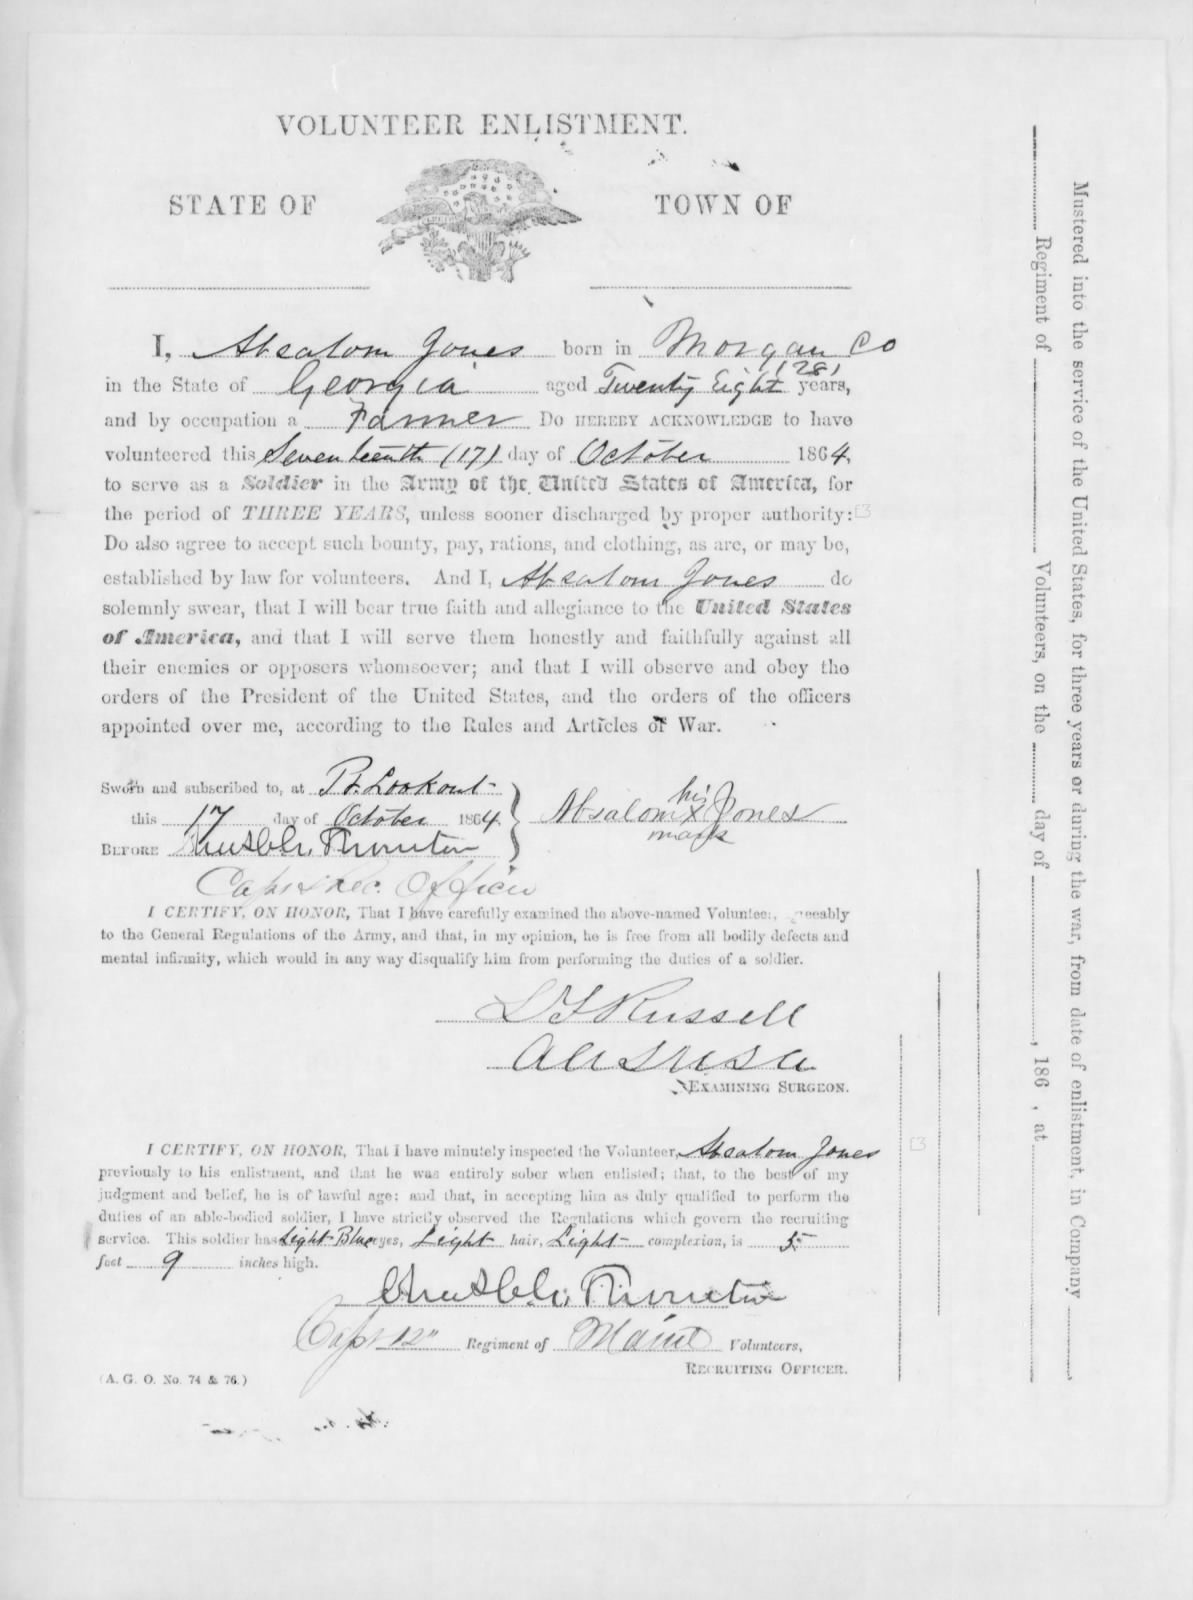 VOLUNTEER ENLISTMENT.
STATE OF
TOWN OF
I, Absalom Jones born in Morgan Co
in the State of Georgia aged Twenty Eight (28) years,
and by occupation a Farmer DO HEREBY ACKNOWLEDGE to have
volunteered this Seventeenth (17) day of October 1864,
to serve as a Soldier in the Army of the United States of America, for
the period of THREE YEARS, unless sooner discharged by proper authority:
Do also agree to accept such bounty, pay, rations, and clothing, as are, or may be,
established by law for volunteers. And I, Absalom Jones do
solemnly swear, that I will bear true faith and allegiance to the United States
of America, and that I will serve them honestly and faithfully against all
their enemies or opposers whomsoever; and that I will observe and obey the
orders of the President of the United States, and the orders of the officers
appointed over me, according to the Rules and Articles of War.
Sworn and subscribed to, at Pt. Lookout
this 17 day of October 1864.
BEFORE Thornton
Capt & Rec. Officer
Absalom his X mark Jones
I CERTIFY, ON HONOR, That I have carefully examined the above-named Volunteer, agreeably
to the General Regulations of the Army, and that, in my opinion, he is free from all bodily defects and
mental infirmity, which would in any way disqualify him from performing the duties of a soldier.
Russell
EXAMINING SURGEON.
I CERTIFY, ON HONOR, That I have minutely inspected the Volunteer, Absalom Jones
previously to his enlistment, and that he was entirely sober when enlisted; that, to the best of my
judgment and belief, he is of lawful age; and that, in accepting him as duly qualified to perform the
duties of an able-bodied soldier, I have strictly observed the Regulations which govern the recruiting
service. This soldier has Light Blue eyes, Light hair, Light complexion, is 5
feet 9 inches high.
Thornton
Capt 12" Regiment of Maine Volunteers,
RECRUITING OFFICER.
(A. G. O. No. 74 & 76.)
Mustered into the service of the United States, for three years or during the war, from date of enlistment, in Company
Regiment of Volunteers, on the day of , 186 , at